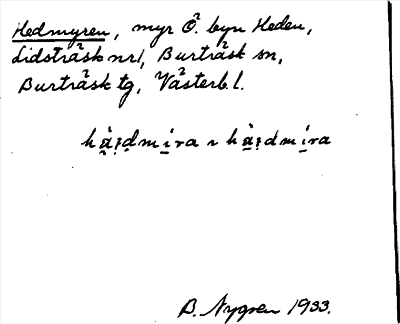 Hedmyren, myr Ö. byn Heden,
Lidsträsk nr 1, Burträsk sn,
Burträsk tg, Västerb. l.
hä̀:dmira ~ hä̀:dmira
B. Nygren 1933.